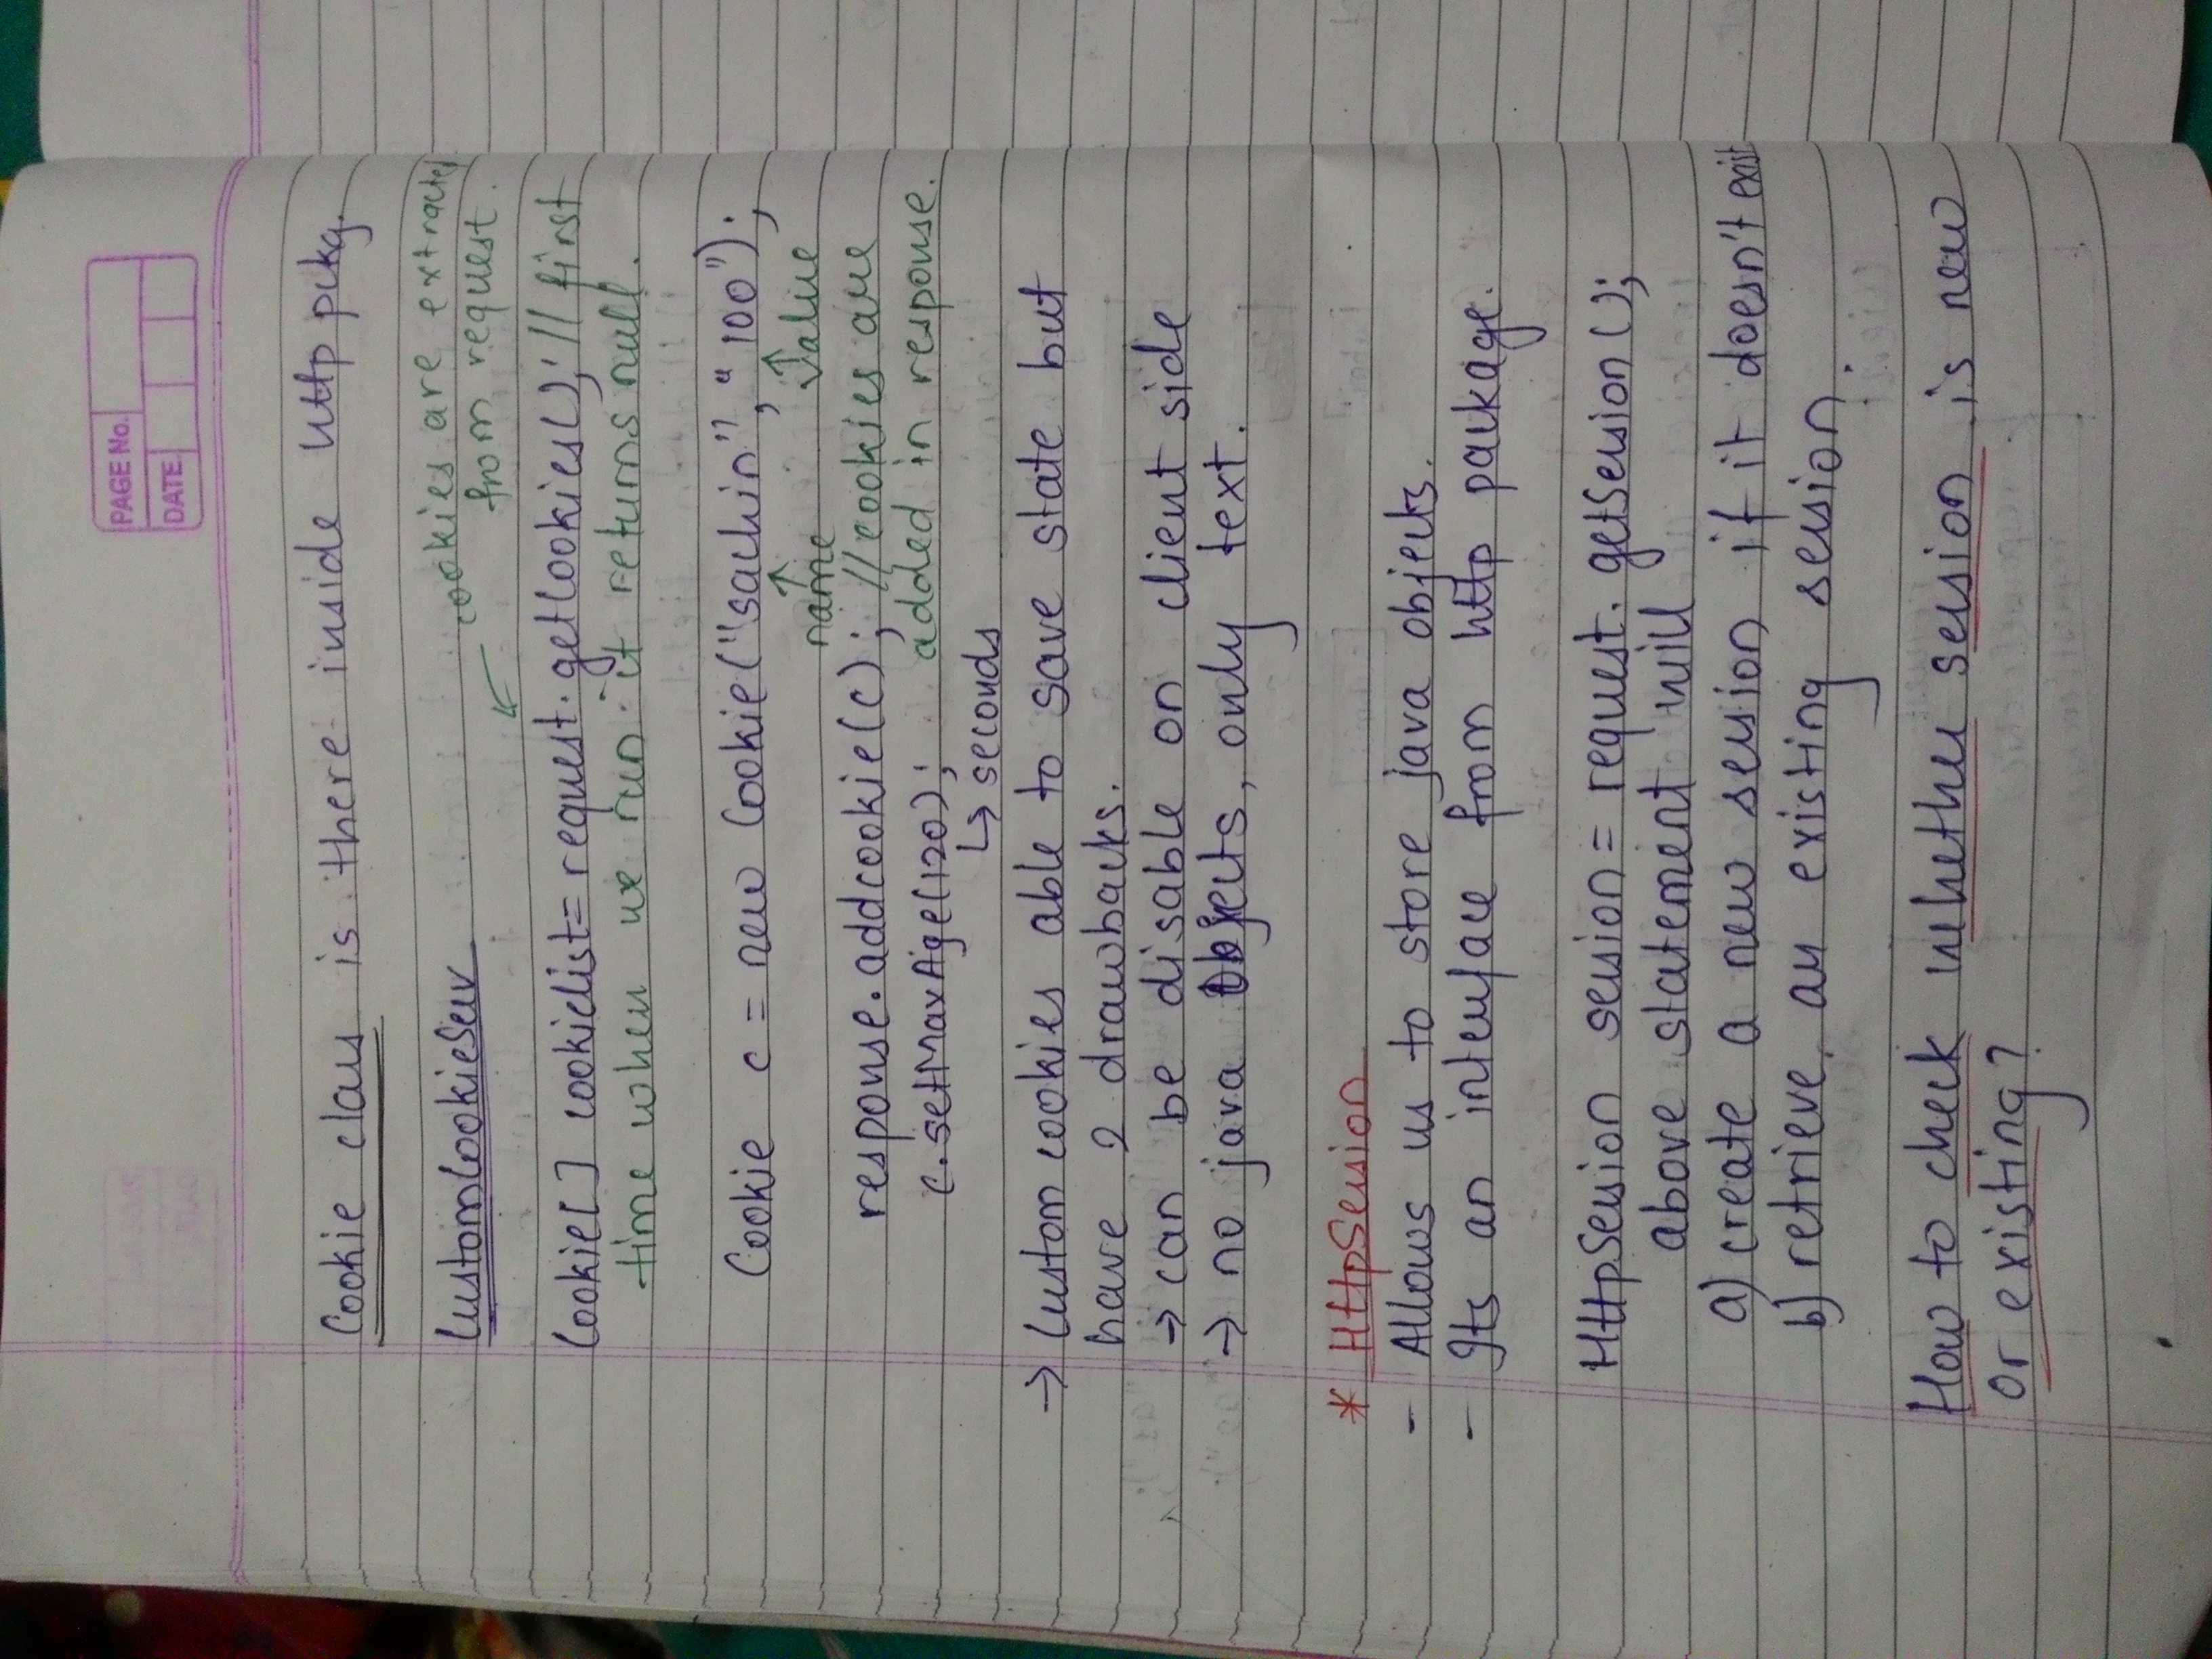 PAGE No.
DATE
Cookie class is there inside http pckg.
CustomCookieServ
cookies are extracted
from request.
Cookie[] cookielist= request.getCookies(); // first
time when we run it returns null.
Cookie c = new Cookie("sachin", "100");
name value
response.addcookie(c); //cookies are
c.setMaxAge(120); added in response.
↳ seconds
→ Custom cookies able to save state but
have 2 drawbacks.
→ can be disable on client side
→ no java Objects, only text.
* HttpSession
- Allows us to store java objects.
- Its an interface from http package.
HttpSession session = request.getSession();
above statement will
a) create a new session if it doesn't exist
b) retrieve an existing session.
How to check whether session is new
or existing?